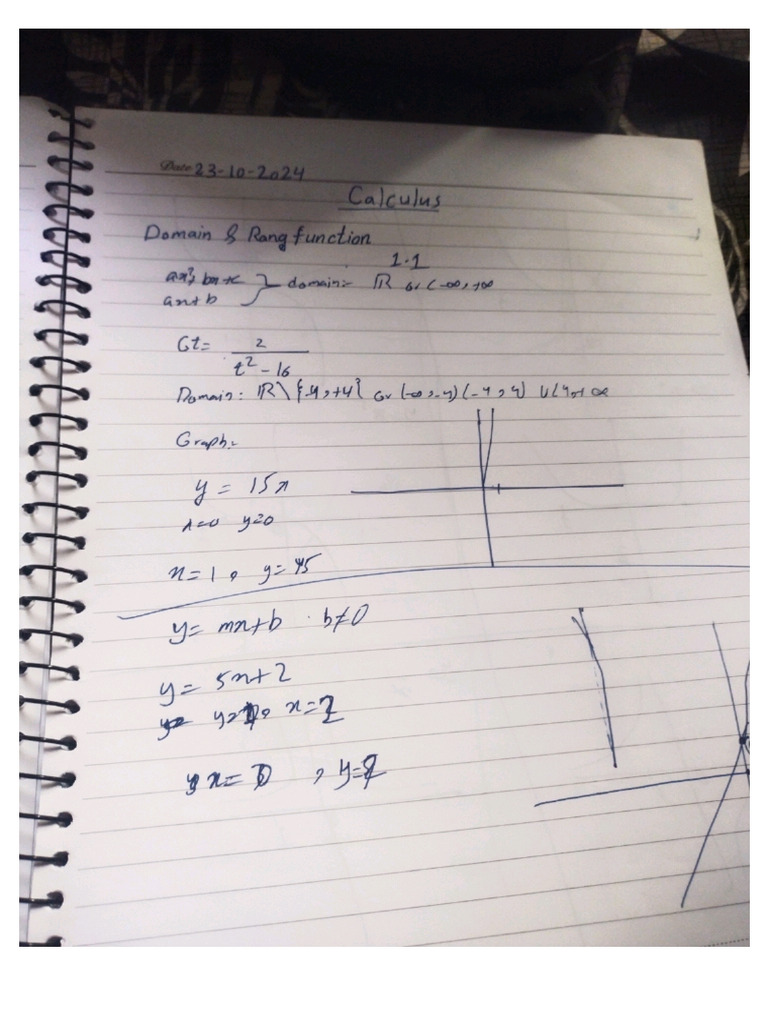 Date 23-10-2024
Calculus
Domain & Rang function
1.1
ax², bx+c
ax+b } domain:- ℝ or (-∞, +∞
Gt= 2 / t²-16
Domain: ℝ\{-4,+4} or (-∞,-4)(-4,4) U(4,+∞
Graph:-
y = 15x
x=0 y=0
x=1, y=15
y= mx+b b≠0
y= 5x+2
x=
x= , y=